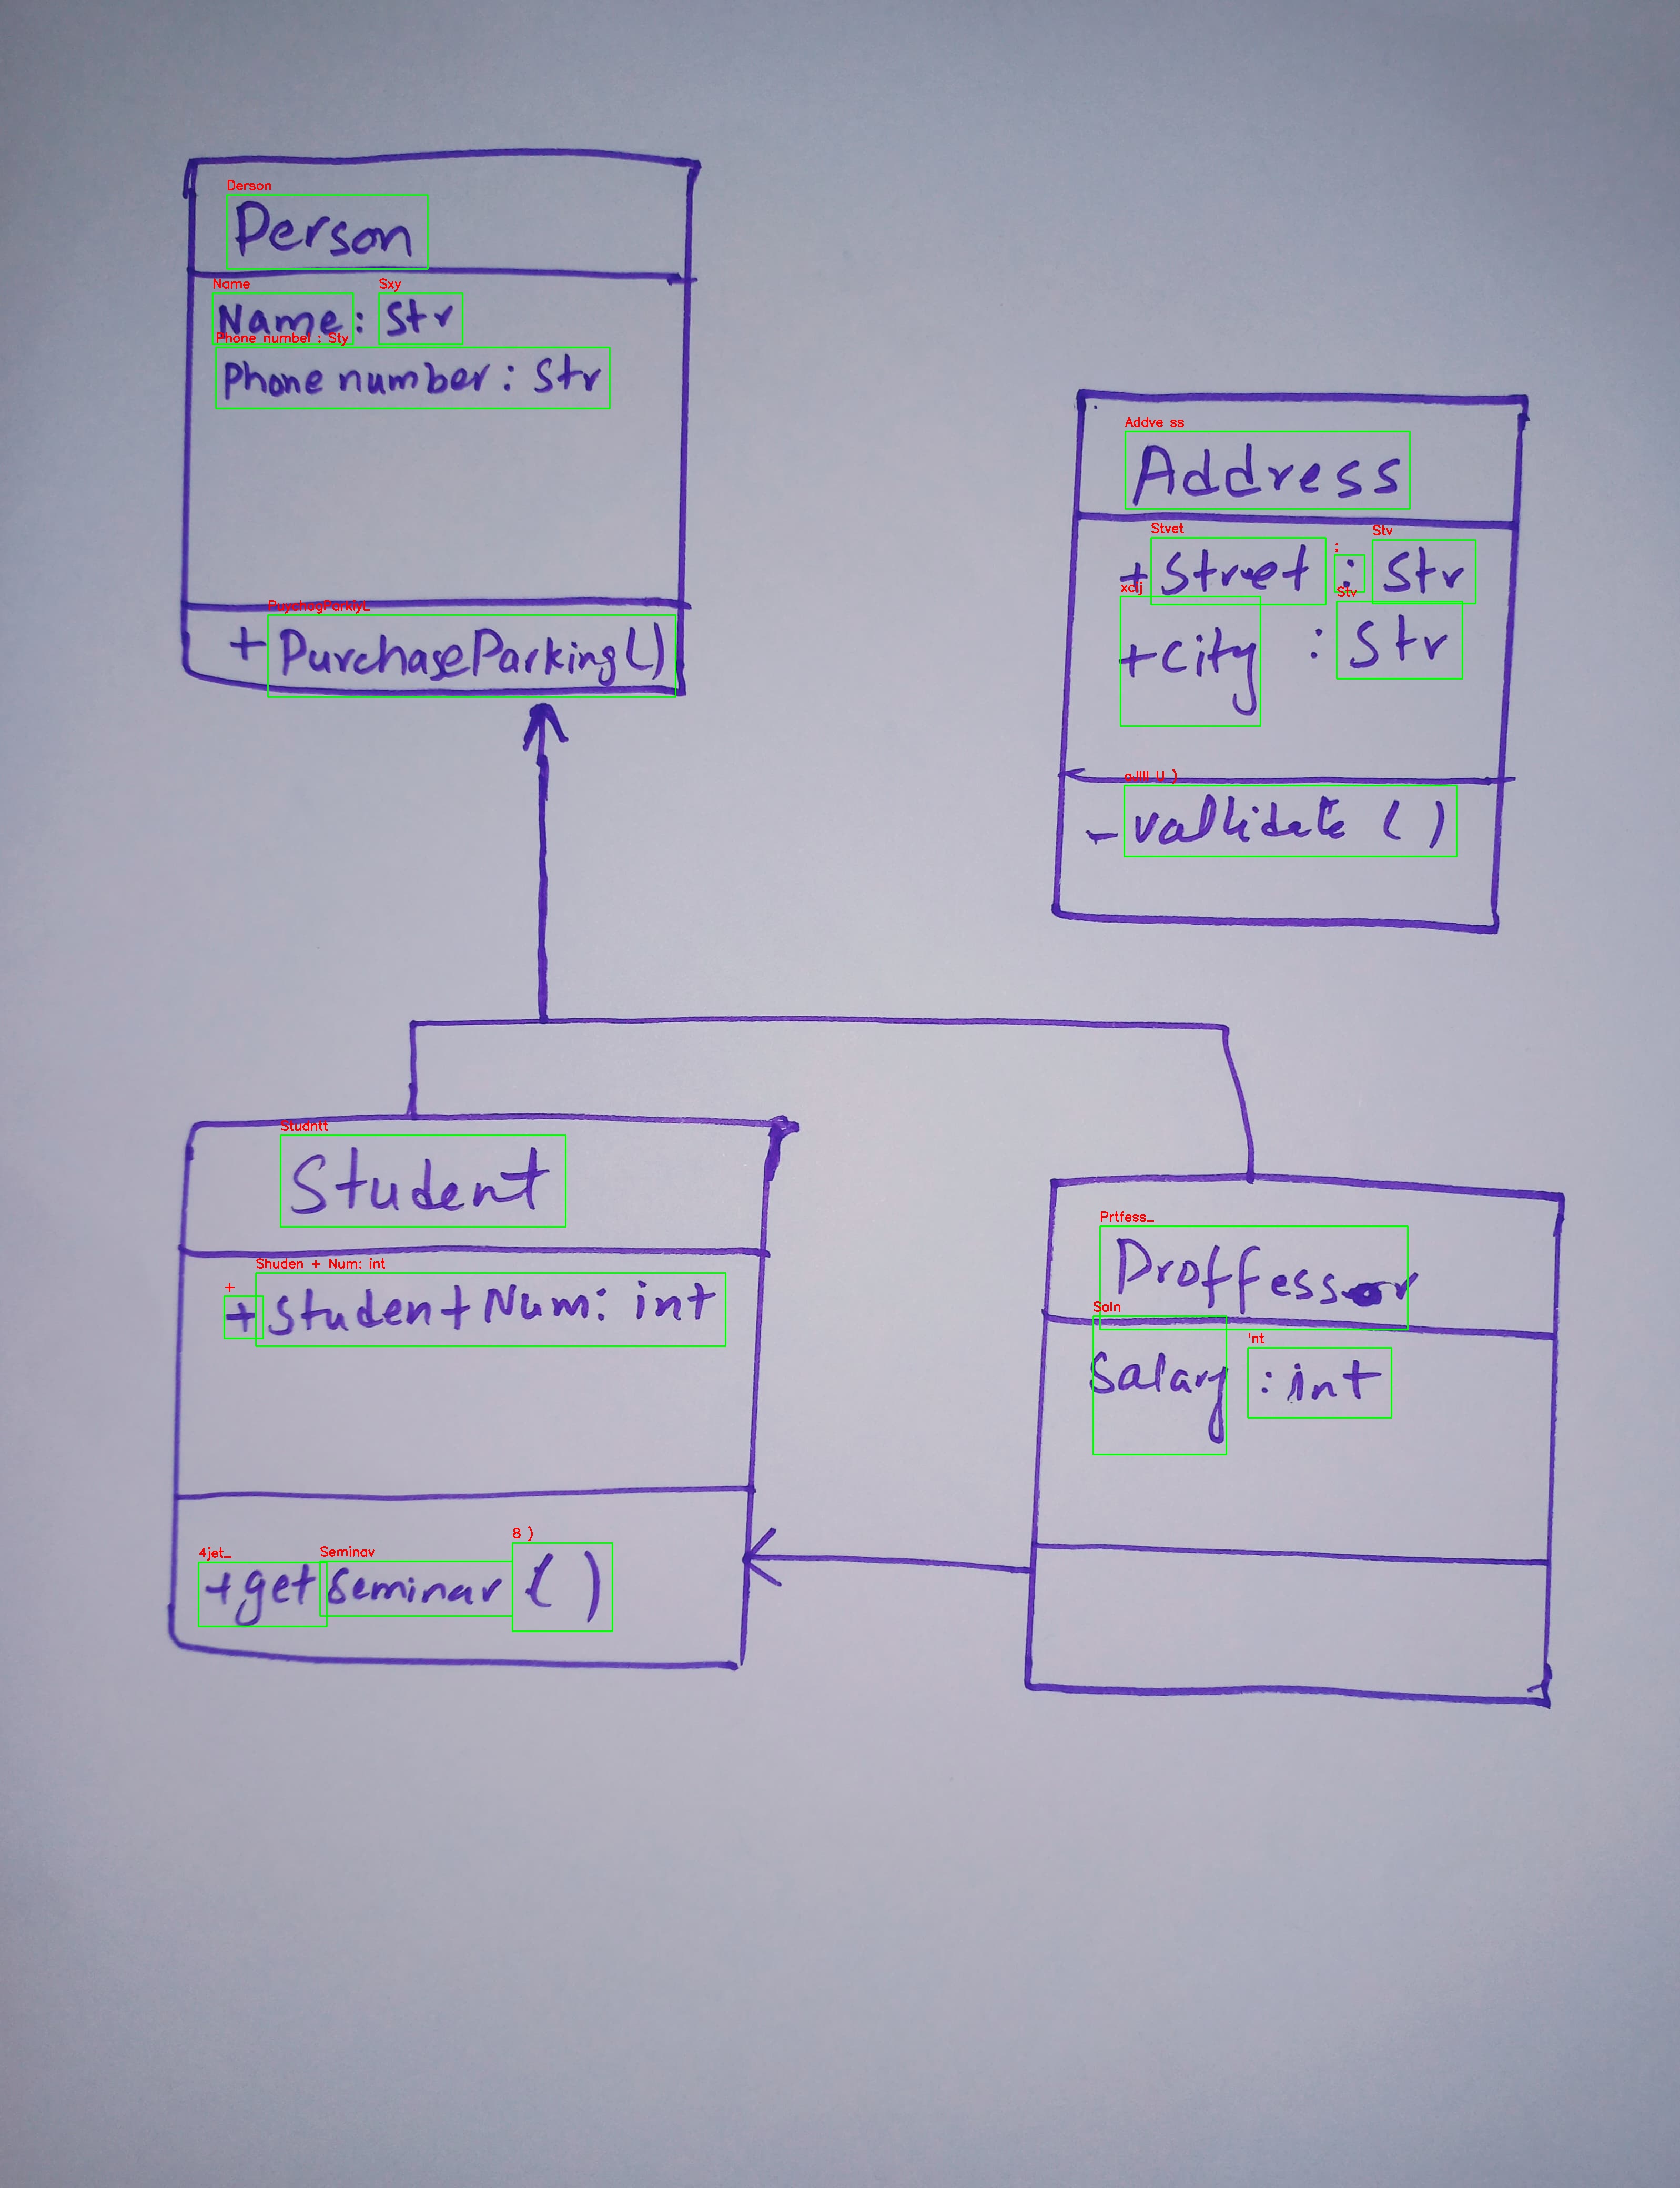 Derson
Person
Name Sxy
Name: Str
Phone number : Sty
Phone number: Str
PuychagParklyL
+ PurchaseParking()
Addve ss
Address
Stvet ; Stv
+ Street : Str
xdj Stv
+ City : Str
aJlll U )
- vallidate ()
Studntt
Student
Shuden + Num: int
+
+ Student Num: int
4jet_ Seminav 8 )
+get Seminar ()
Prtfess_
Proffessor
Saln 'nt
Salary : int